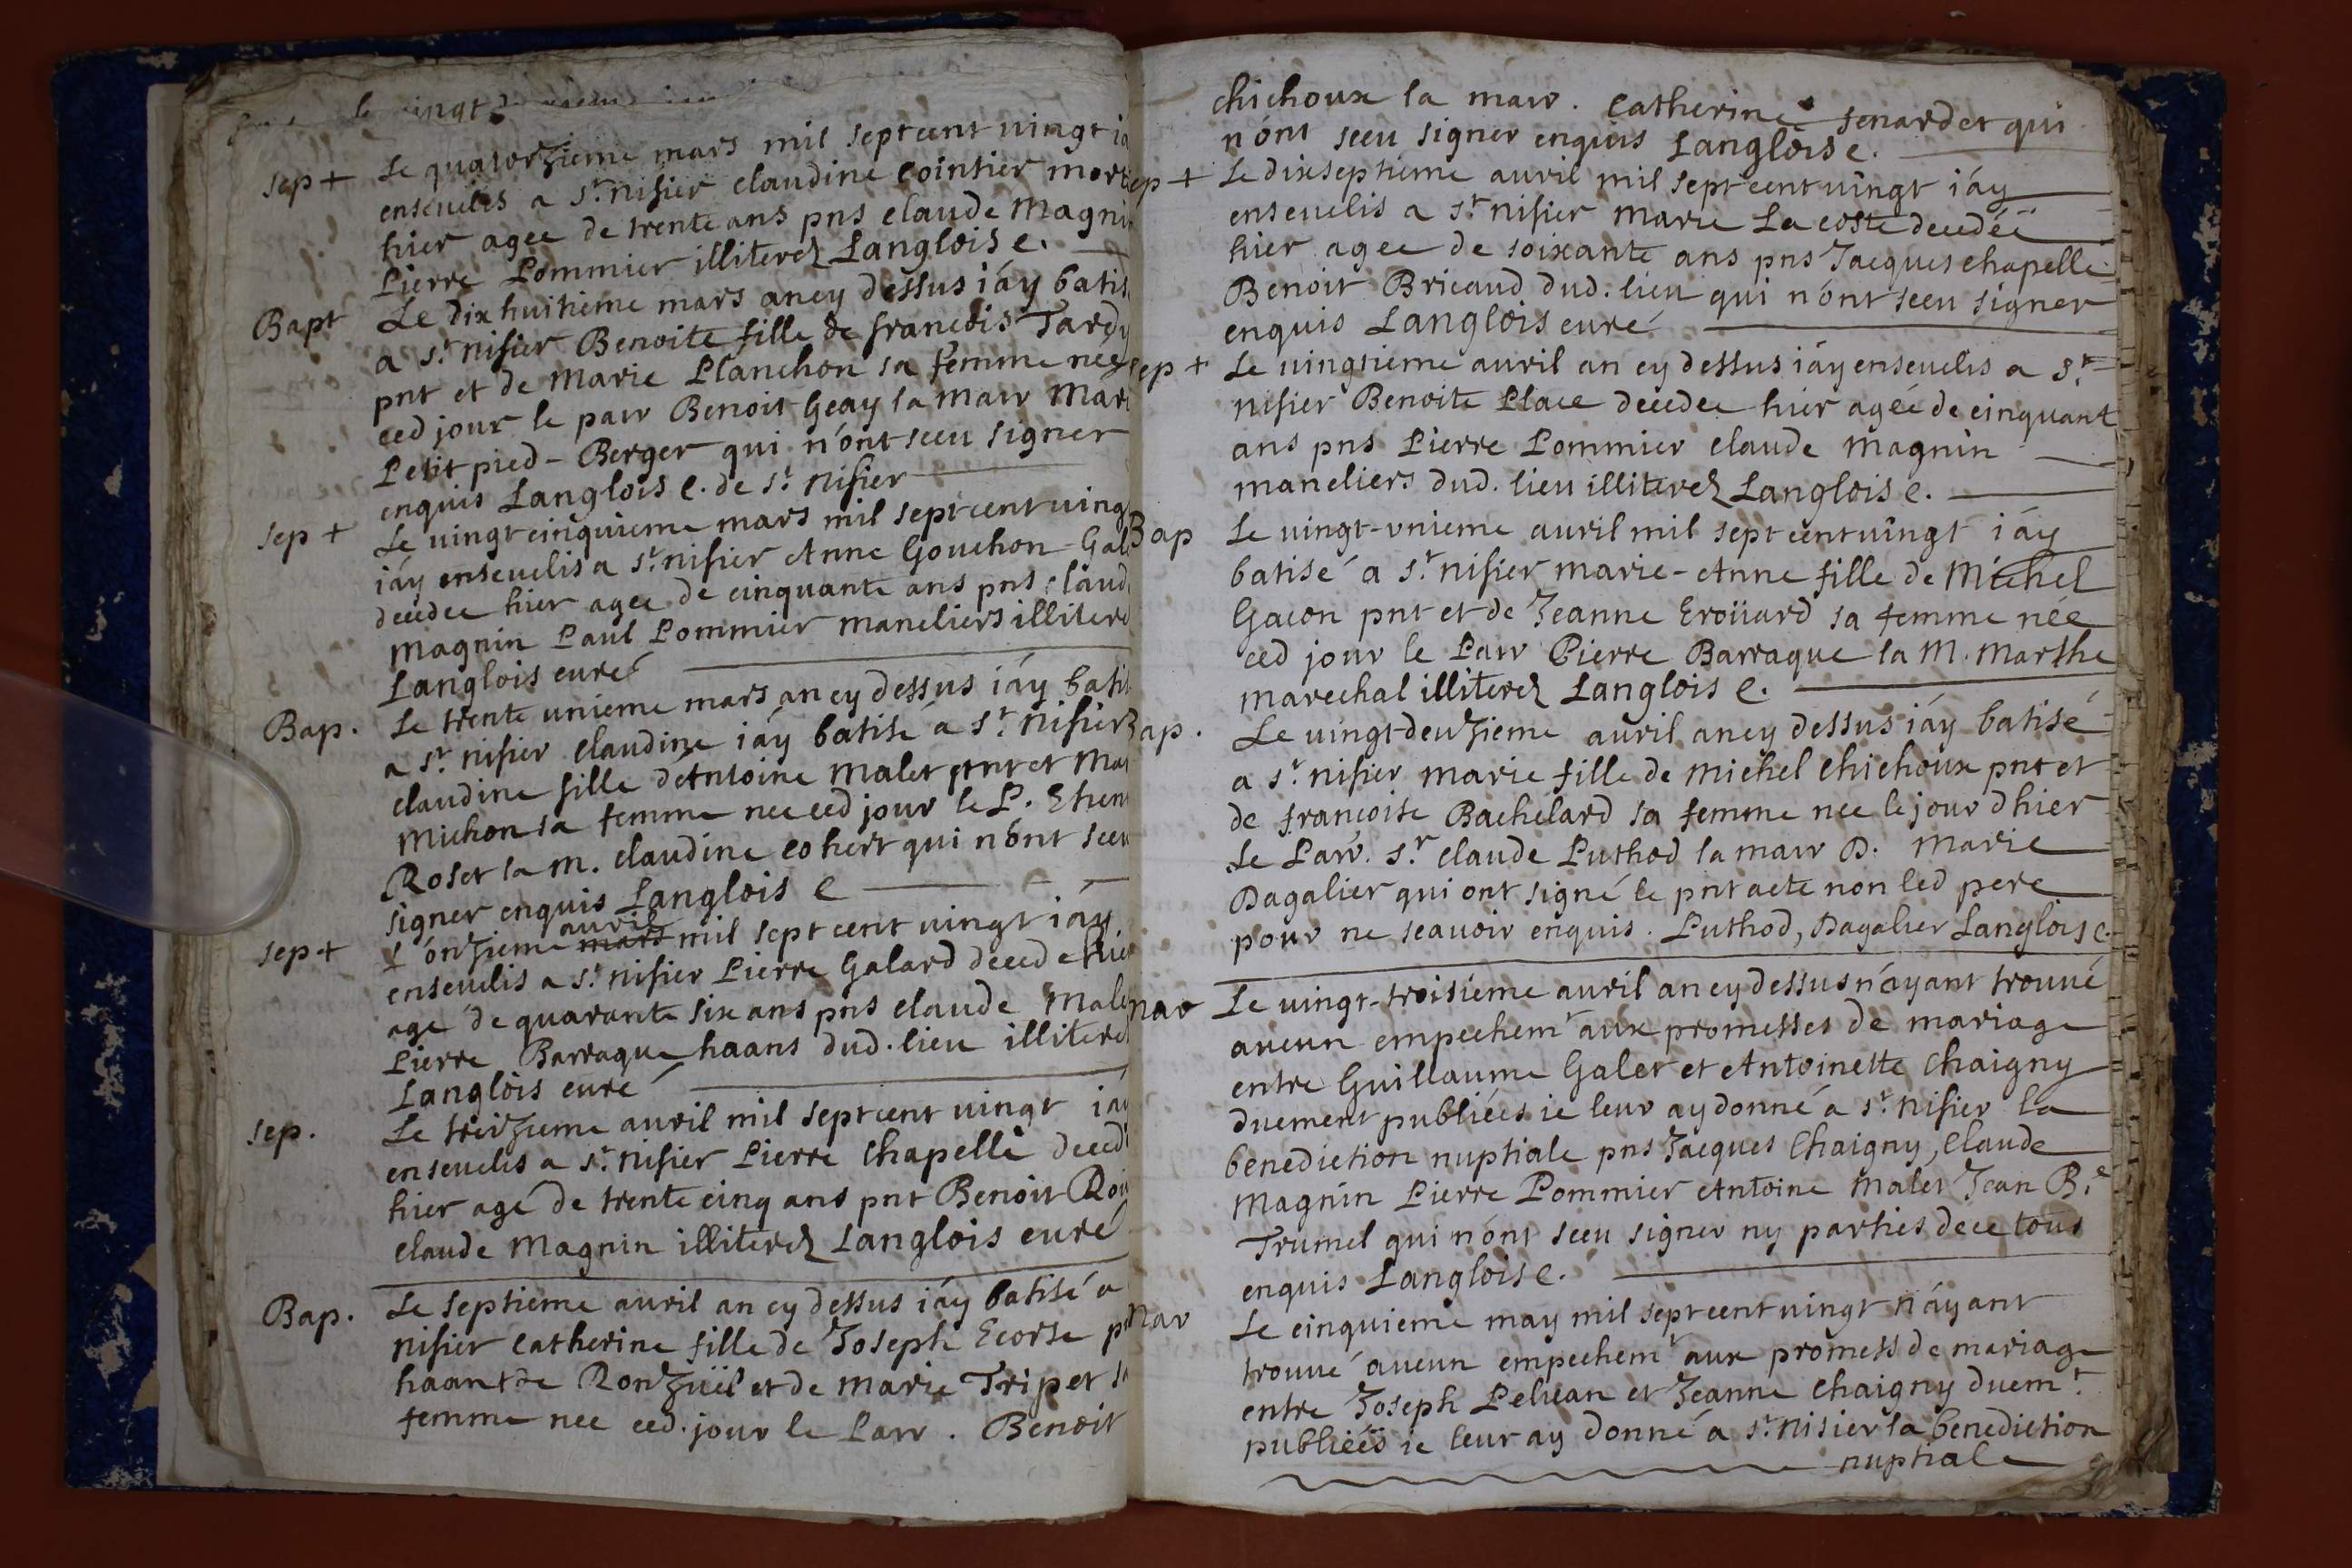 sep + Le quatorzieme mars mil sept cent vingt
enseuelis a st. nisier claudine Cointier
hier agee de trente ans pns claude Magnin
Pierre Pommier illiterez Langlois c.
Bapt Le dix huitieme mars an cy dessus iáy batis
a st. nisier Benoite fille de francois Tardy
pnt et de Marie Planchon sa femme née
ced jour le parr Benoit Geay la Marr Mari
Petit pied - Berger qui n'ónt sceu signer
enquis Langlois C. de st. nisier
sep + Le vingt cinquieme mars mil sept cent ving
iáy enseuelis a st. nisier Anne Gouchon - Gal
decedee hier agee de cinquante ans pns claud
Magnin Paul Pommier maneliers illitere
Langlois curé
Bap. Le trente unieme mars an cy dessus iáy batis
a st. nisier claudine iáy batisé a st. nisier
claudine fille d'Antoine Malet pnt et Mar
Michon sa femme nee ced jour le P. Etien
Roset la M. claudine cohert qui n'ónt sceu
signer enquis Langlois C
sep + L'ónzieme mars auril mil sept cent vingt iáy
enseuelis a st. nisier Pierre Galard decede hier
agé de quarante six ans pns claude Male
Pierre Barraque haans dud. lieu illitere
Langlois curé
sep. Le treizieme auril mil sept cent vingt iáy
enseuelis a st. nisier Pierre Chapelle deced
hier agé de trente cinq ans pnt Benoit Roi
claude Magnin illiterez Langlois curé
Bap. Le septieme auril an cy dessus iáy batisé a
nisier catherine fille de Joseph Ecorse
haant de Ronzüel et de marie Tripet sa
femme nee ced. jour le Parr. Benoit
chichoux la marr. Catherine senardet qui
n'ónt sceu signer enquis Langlois c.
ep + Le dixseptieme auril mil sept cent vingt iáy
enseuelis a st. nisier Marie La coste decedée
hier agee de soixante ans pns Jacques chapelle
Benoit Bricaud dud. lieu qui n'ónt sceu signer
enquis Langlois curé
ep + Le vingtieme auril an cy dessus iáy enseuelis a st.
nisier Benoite Place decedee hier agée de cinquant
ans pns Pierre Pommier claude Magnin
maneliers dud. lieu illiterez Langlois C.
Bap Le vingt-vnieme auril mil sept cent vingt iáy
batisé a st. nisier marie-Anne fille de Michel
Gacon pnt et de Jeanne Eroüard sa femme née
ced jour le Parr Pierre Barraque la M. Marthe
marechal illiterez Langlois C.
ap. Le vingt-deuzieme auril an cy dessus iáy batisé
a st. nisier marie fille de michel Chichoux pnt et
de francoise Bachelard sa femme nee le jour dhier
le Parr. sr. claude Puthod la marr D. Marie
Dagalier qui ont signé le pnt acte non led pere
pour ne scauoir enquis. Puthod, Dagalier Langlois c.
mar Le vingt-troisieme auril an cy dessus n'áyant trouué
aucun empechemt aux promesses de mariage
entre Guillaume Galet et Antoinette Chaigny
duement publiées ie leur ay donné a st. nisier la
benediction nuptiale pns Jacques Chaigny, Claude
Magnin Pierre Pommier Antoine Malet Jean Bte
Trumel qui n'ónt sceu signer ny parties de ce tous
enquis Langlois C.
mar Le cinquieme may mil sept cent vingt n'áyant
trouué aucun empechemt aux promess de mariage
entre Joseph Peluan et Jeanne Chaigny duemt.
publiées ie leur ay donné a st. nisier la benediction
nuptiale